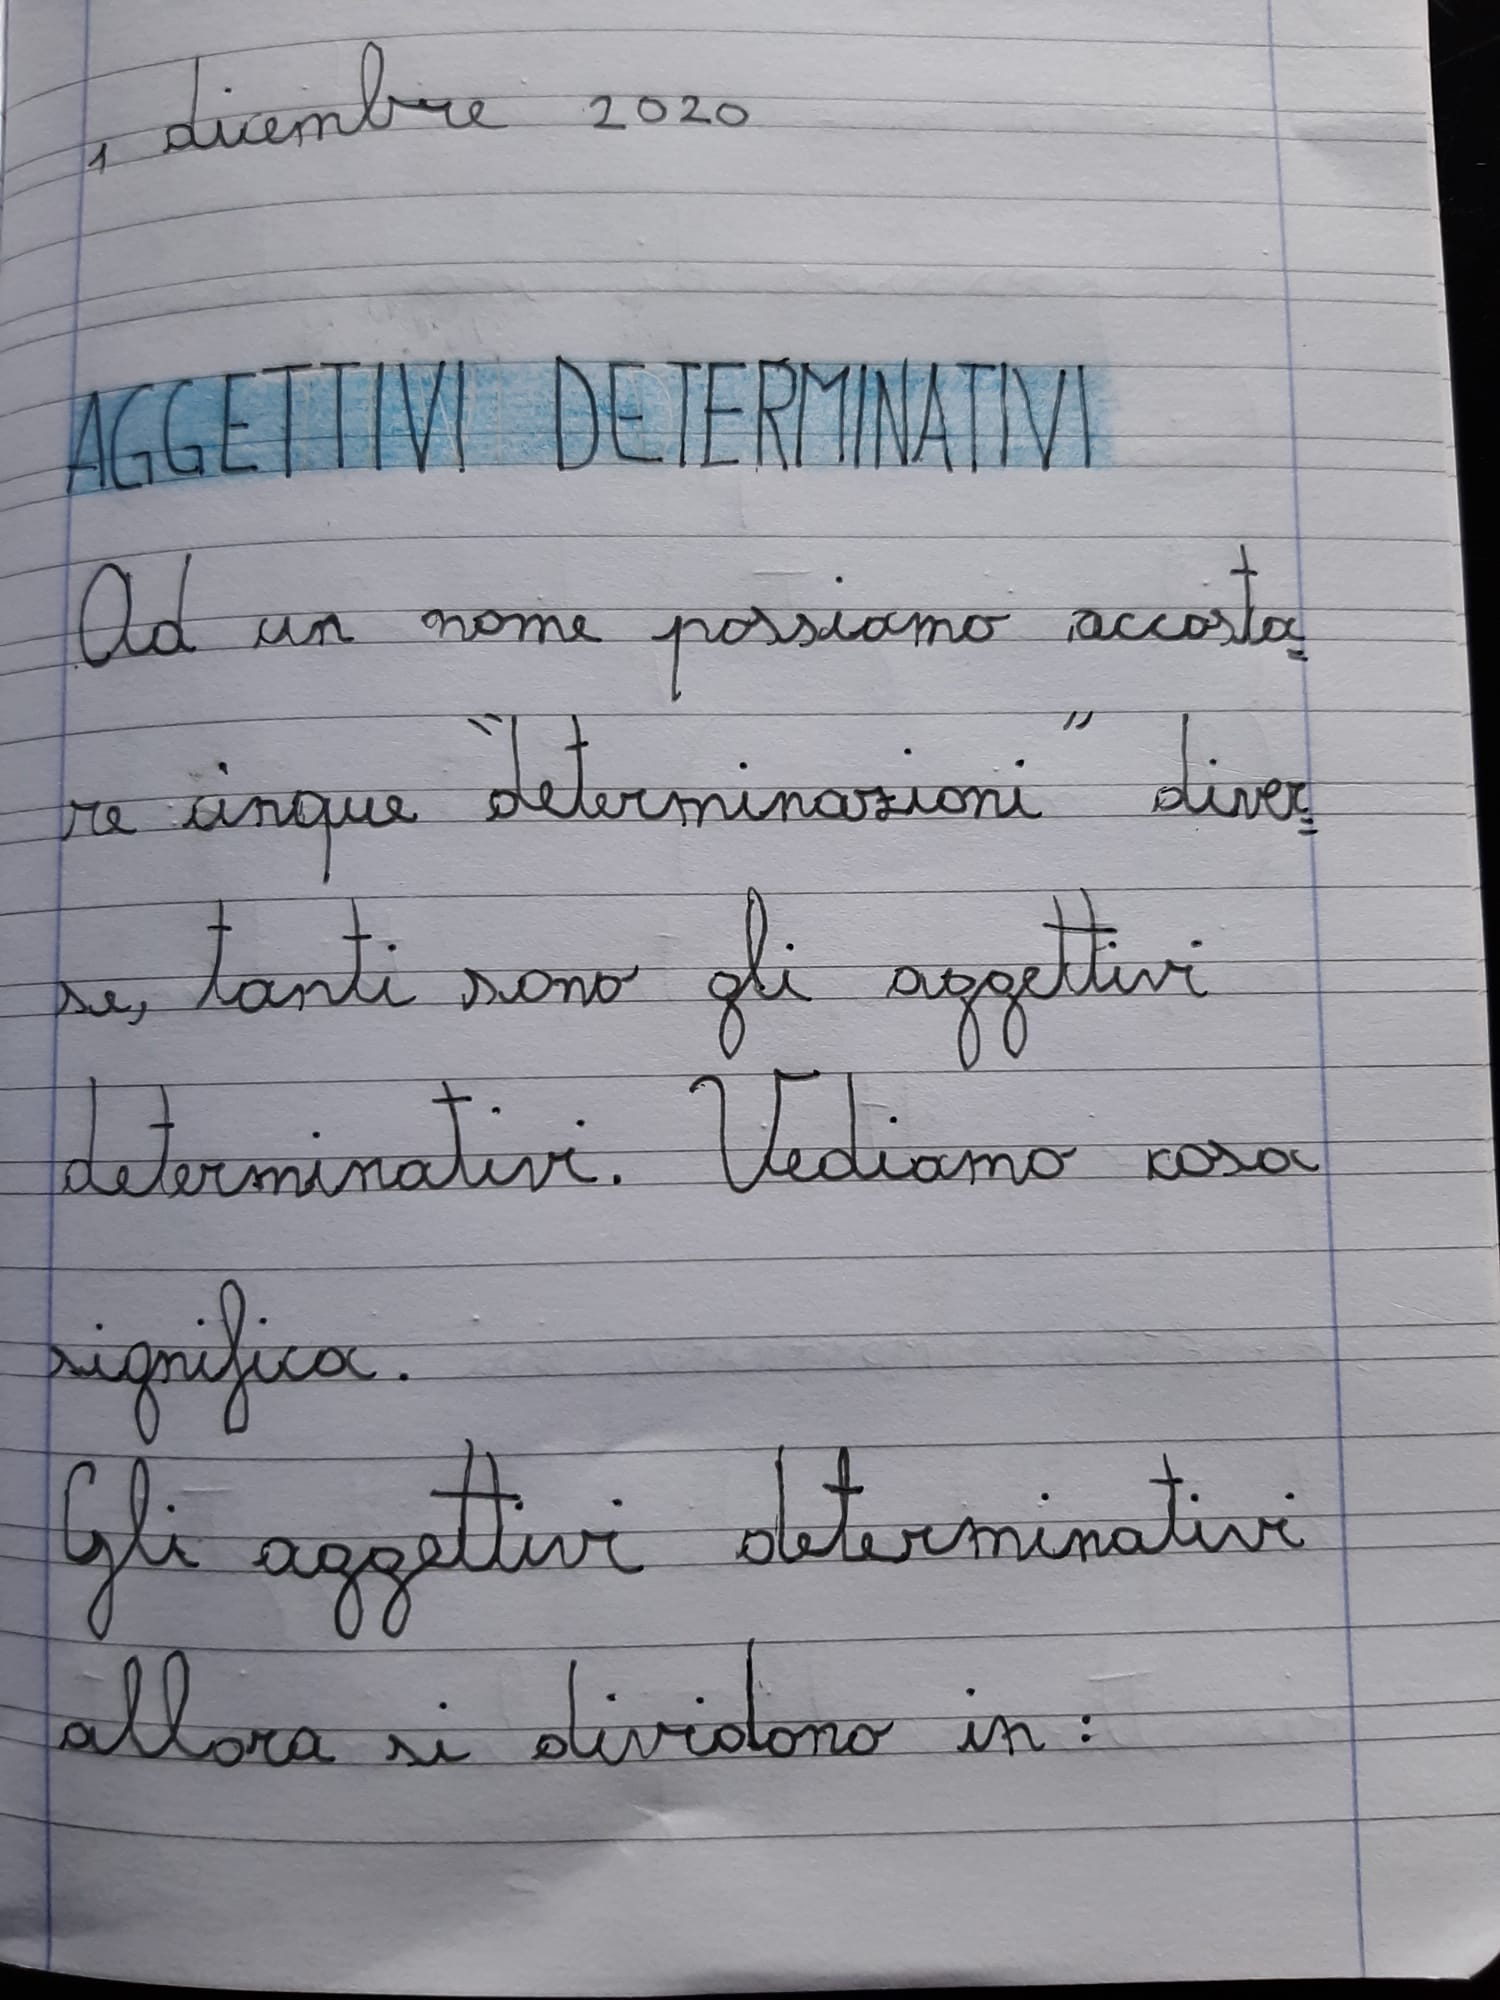 1 dicembre 2020
AGGETTIVI DETERMINATIVI
Ad un nome possiamo accosta=
re cinque "determinazioni" diver=
se, tanti sono gli aggettivi
determinativi. Vediamo cosa
significa.
Gli aggettivi determinativi
allora si dividono in: